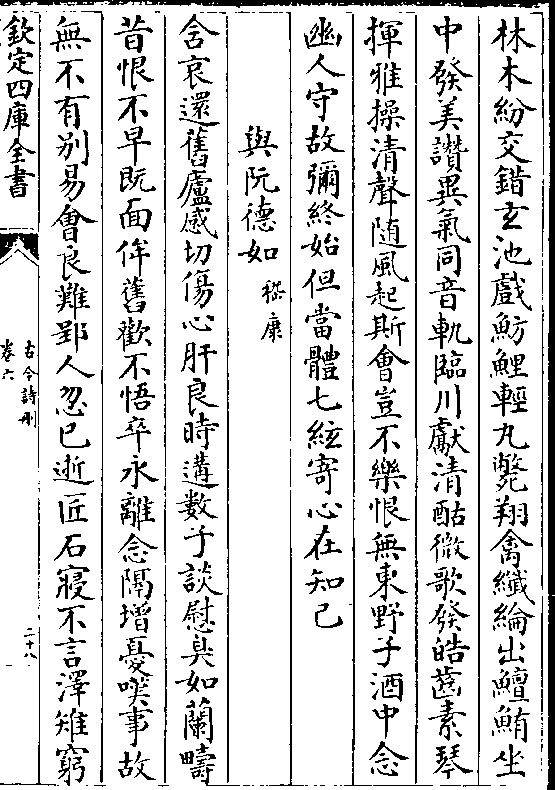 林木紛交錯玄池戲魴鯉輕丸斃翔禽纖綸出鱣鮪坐
中發美讚異氣同音軌臨川獻清酤微歌發皓齒素琴
揮雅操清聲随風起斯會豈不樂恨無東野子酒中念
幽人守故彌終始但當體七絃寄心在知己
與阮德如 嵇康
含哀還舊廬感切傷心肝良時遘數子談慰臭如蘭疇
昔恨不早既面侔舊歡不悟卒永離念隔增憂嘆事故
無不有别易會良難郢人忽已逝匠石寢不言澤雉窮
欽定四庫全書
古今詩刪
卷六
二十八